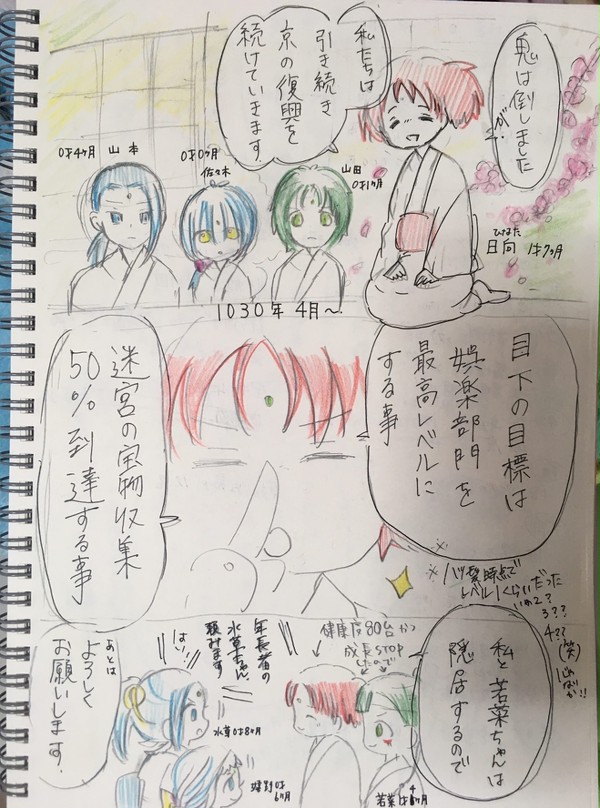 鬼は倒しました
が!
私たちは
引き続き
京の復興を
続けていきます
ひなた
日向 1才7ヶ月
山田
0才1ヶ月
0才0ヶ月
佐々木
0才4ヶ月 山本
1030年 4月〜
目下の目標は
娯楽部門を
最高レベルに
する事
迷宮の宝物収集
50%到達する事
※ハツ髪時点で
レベル1くらいだった
私と若菜ちゃんは
隠居するので
健康度80台かつ
成長STOP
したので
年長者の
水草ちゃん
頼みます
はいっ
水草1才8ヶ月
嬉野1才
6ヶ月
あとは
よろしく
お願いします。